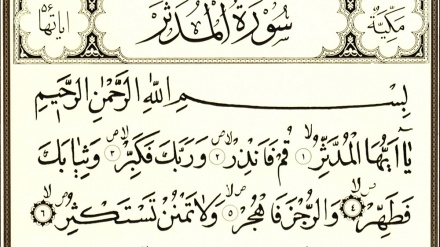 مكية سورة المدثر اياتها ٥٦
بِسْمِ اللّٰهِ الرَّحْمٰنِ الرَّحِيمِ
يَٓا اَيُّهَا الْمُدَّثِّرُۙ ١ قُمْ فَاَنْذِرْۙ ٢ وَرَبَّكَ فَكَبِّرْۙ ٣ وَثِيَابَكَ
فَطَهِّرْۙ ٤ وَالرُّجْزَ فَاهْجُرْۙ ٥ وَلَا تَمْنُنْ تَسْتَكْثِرُۙ ٦